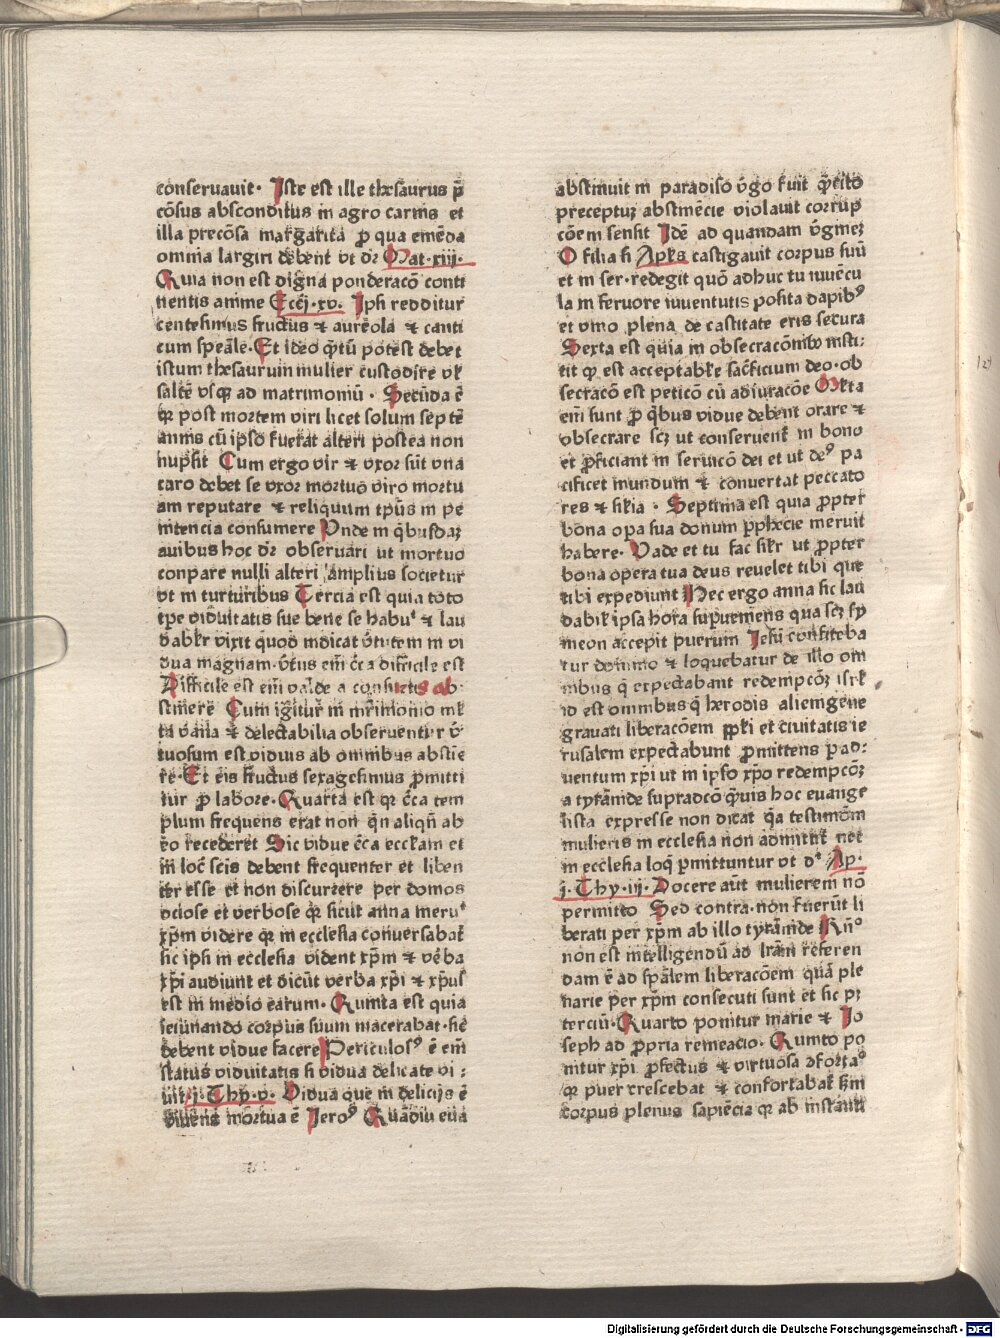 conseruauit· Iste est ille thesaurus p̄
cōsus absconditus in agro carnis et
illa precōsa margarita ꝓ qua emēda
omnia largiri debent vt dꝛ Mat·xiij·
Quia non est digna ponderacō conti
nentis anime Eccj·xv. Ipsi redditur
centesimus fructus ⁊ aureola ⁊ canti
cum speāle· Et ideo q̄tū potest debet
istum thesaurum mulier custodire vl̄
saltē vsqꝫ ad matrimoniū · Secūda ē
qꝛ post mortem viri licet solum septē
annis cū ipso fuerat alteri postea non
nupsit Cum ergo vir ⁊ vxor sūt vna
caro debet se vxor mortuo viro mortu
am reputare ⁊ reliquum tp̄us in pe
nitencia consumere Vnde in q̄busdaꝫ
auibus hoc dꝛ obseruari ut mortuo
conpare nulli alteri amplius societur
vt in turturibus Tercia est quia toto
tp̄e viduitatis sue bene se habuᵗ ⁊ lau
dabilr̄ vixit quod indicat v̄tutem in vi
dua magnam·v̄tus em̄ c̄ca difficile est
Difficile est em̄ valde a consuetis ab·
stinere Cum igitur in mr̄imonio ml̄
ta varia ⁊ delectabilia obseruentur v̄
tuosum est viduis ab omnibus abstīe
re· Et eis fructus sexagesimus ꝓmitti
tur ꝓ labore· Quarta est qꝛ c̄ca tem
plum frequens erat non q̄n aliqn̄ ab
eo recederet Sic vidue c̄ca eccl̄am et
in loc̄ sc̄is debent frequenter et liben
ter esse et non discurrere per domos
ociose et verbose qꝛ sicut anna meruᵗ
xp̄m videre qꝛ in ecclesia conuersabat̄
sic ipsi in ecclesia vident xp̄m ⁊ v̄ba
xp̄i audiunt et dicūt verba xp̄i ⁊ xp̄us
est in medio earum· Quinta est quia
ieiunando corpus suum macerabat·sic̄
debent vidue facere Periculosꝰ ē em̄
status viduitatis si vidua delicate vi:
uit·j·Thy·v· Vidua que in delicijs ē
viuens mortua ē Jeroꝰ Quādiu eua
abstinuit in paradiso v̄go fuit q̄cito
preceptuꝫ abstinēcie violauit corrup
cōem sensit Idē ad quandam v̄gineꝫ
O filia si Apl̄s castigauit corpus suū
et in ser·redegit quō adhuc tu iuuēcu
la in feruore iuuentutis posita dapibꝰ
et vino plena de castitate eris secura
Sexta est quia in obsecracōnibꝰ insti·
tit qꝫ est acceptabile sac̄ficium deo·ob
secracō est peticō cū adiuracōe Ml̄ta
em̄ sunt ꝓ q̄bus vidue debent orare ⁊
obsecrare scꝫ ut conseruent̄ in bono
et ꝓficiant in seruicō dei et ut deꝰ pa
cificet mundum ⁊ conuertat peccato
res ⁊ silia · Septima est quia ꝓpter
bona opa sua donum ꝓphecie meruit
habere· Vade et tu fac silr̄ ut ꝓpter
bona opera tua deus reuelet tibi que
tibi expediunt Hec ergo anna sic lau
dabil̄ ipsa hora supuemens qua scꝫ sy
meon accepit puerum Jesū confiteba
tur domino ⁊ loquebatur de illo om
nibus q̄ expectabant redempcōꝫ isrl̄
id est omnibus q̄ herodis aliemgene
grauati liberacōem pp̄li et ciuitatis ie
rusalem expectabunt ꝓmittens ꝑ ad:
uentum xp̄i ut in ipso xp̄o redempcōꝫ
a tyrānide supradcō q̄uis hoc euange
lista expresse non dicat q̄a testimōm
mulieris in ecclesia non admittit̄ nec
in ecclesia loqͥ ꝑmittuntur vt dᵗ Ap·
j·Thy·ij· Docere aūt mulierem nō
permitto Sed contra·non fuerūt li
berati per xp̄m ab illo tyrānide Rn̄º
non est intelligendū ad lr̄am referen
dam ē ad spālem liberacōem quā ple
narie per xp̄m consecuti sunt et sic pꝫ
terciū· Quarto ponitur marie ⁊ Io
seph ad ꝓpria remeacio· Quinto po
nitur xp̄i ꝓfectus ⁊ virtuosa ꝯfortaº
qꝛ puer crescebat ⁊ confortabat̄ sc̄m
corpus plenus sapiēcia qꝛ ab instanti
Digitalisierung gefördert durch die Deutsche Forschungsgemeinschaft · DFG